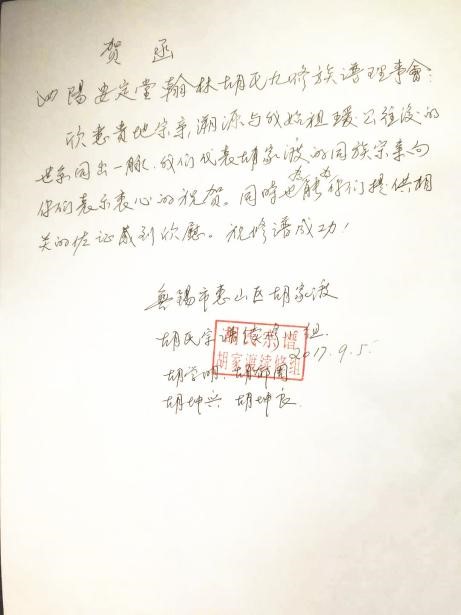 贺 函
泗阳安定堂翰林胡氏九修族谱理事會：
欣悉贵地宗亲溯源与我始祖瑗公往後的
世系同出一脉，我们代表胡家渡的同族宗亲向
你们表示衷心的祝贺。同時也為能為你们提供相
关的佐证感到欣慰。祝修谱成功！
無锡市惠山区胡家渡
胡氏宗谱 组
2017.9.5.
胡家渡续修组
胡学明
胡坤兴 胡坤良